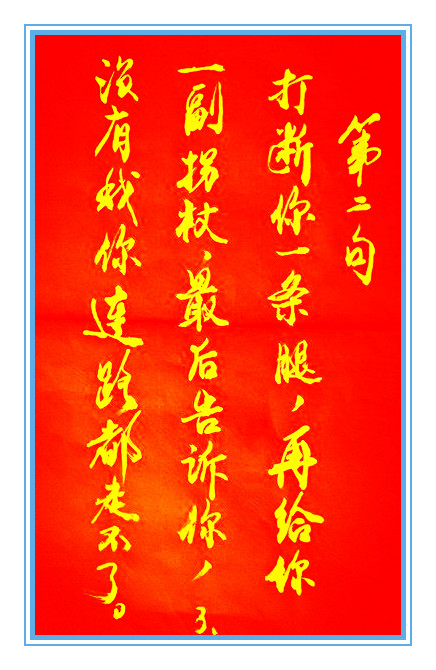 第二句
打断你一条腿，再给你
一副拐杖，最后告诉你，
没有我你连路都走不了。